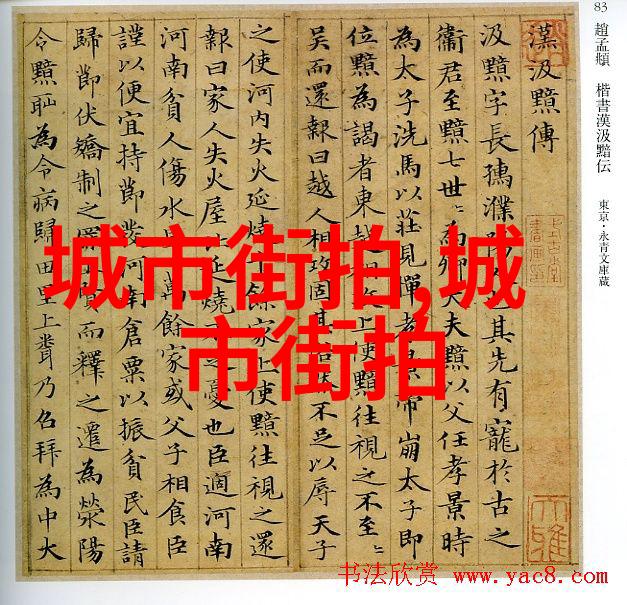 83 趙孟頫 楷書漢汲黯伝 東京・永青文庫蔵
漢汲黯傳
汲黯字長孺濮其先有寵於古之
衞君至黯七世〻為卿大夫黯以父任孝景時
為太子洗馬以莊見憚孝景帝崩太子即
位黯為謁者東越相攻上使黯往視之不至〻
吳而還報曰越人相攻固其俗然不足以辱天子
之使河內失火延燒千餘家上使黯往視之還
報曰家人失火屋比延燒不之憂也臣過河南
河南貧人傷水旱萬餘家或父子相食臣
謹以便宜持節發河南倉粟以振貧民臣請
歸節伏矯制之罪上賢而釋之遷為滎陽
令黯恥為令病歸田里上聞乃召拜為中大
城市街拍,城
市街拍
书法欣赏 www.yac8.com